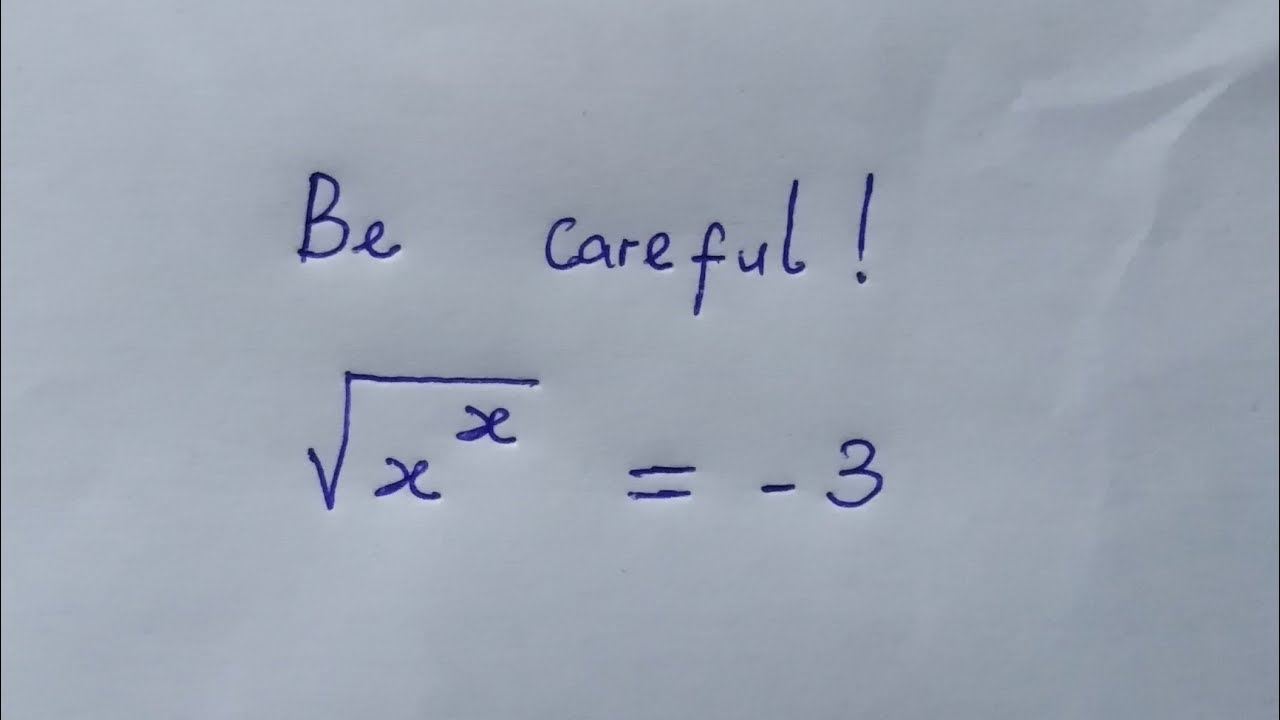 Be careful!
√(x^x) = -3